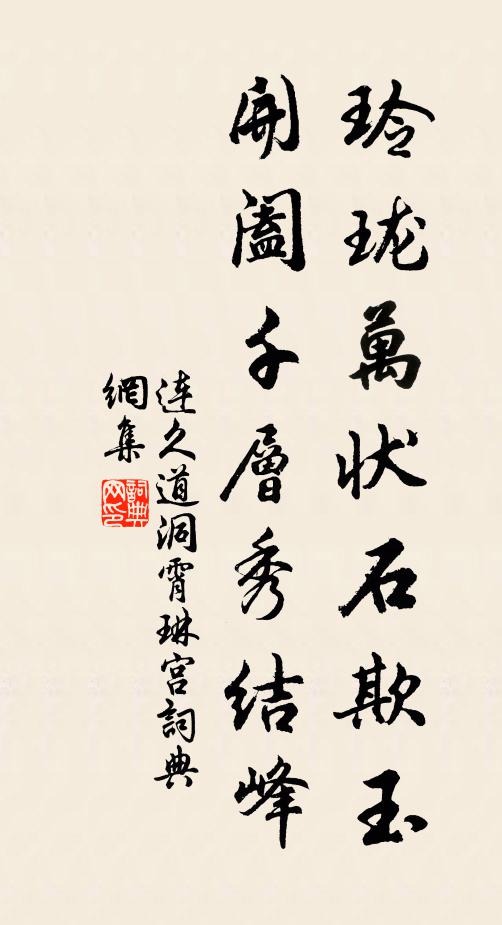 玲珑萬状石欺玉
開阖千層秀结峰
连久道洞霄琳宫詞典
網集
詞典
网印